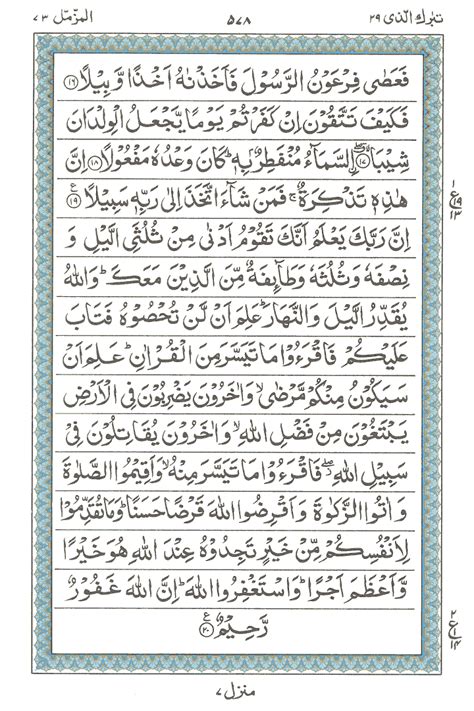 تبٰرك الذی ۲۹
۵۷۸
المزمل ۷۳
فَعَصٰى فِرْعَوْنُ الرَّسُوْلَ فَاَخَذْنٰهُ اَخْذًا وَّبِيْلًا ۱۶
فَكَيْفَ تَتَّقُوْنَ اِنْ كَفَرْتُمْ يَوْمًا يَّجْعَلُ الْوِلْدَانَ
شِيْبًا ۱۷ السَّمَآءُ مُنْفَطِرٌۢ بِهٖ ؕ كَانَ وَعْدُهٗ مَفْعُوْلًا ۱۸ اِنَّ
هٰذِهٖ تَذْكِرَةٌ ۚ فَمَنْ شَآءَ اتَّخَذَ اِلٰى رَبِّهٖ سَبِيْلًا ۱۹
اِنَّ رَبَّكَ يَعْلَمُ اَنَّكَ تَقُوْمُ اَدْنٰى مِنْ ثُلُثَيِ الَّيْلِ وَ
نِصْفَهٗ وَثُلُثَهٗ وَطَآئِفَةٌ مِّنَ الَّذِيْنَ مَعَكَ ؕ وَاللّٰهُ
يُقَدِّرُ الَّيْلَ وَالنَّهَارَ ؕ عَلِمَ اَنْ لَّنْ تُحْصُوْهُ فَتَابَ
عَلَيْكُمْ فَاقْرَءُوْا مَا تَيَسَّرَ مِنَ الْقُرْاٰنِ ؕ عَلِمَ اَنْ
سَيَكُوْنُ مِنْكُمْ مَّرْضٰى ۙ وَاٰخَرُوْنَ يَضْرِبُوْنَ فِى الْاَرْضِ
يَبْتَغُوْنَ مِنْ فَضْلِ اللّٰهِ ۙ وَاٰخَرُوْنَ يُقَاتِلُوْنَ فِىْ
سَبِيْلِ اللّٰهِ ۖ فَاقْرَءُوْا مَا تَيَسَّرَ مِنْهُ ۙ وَاَقِيْمُوا الصَّلٰوةَ
وَاٰتُوا الزَّكٰوةَ وَاَقْرِضُوا اللّٰهَ قَرْضًا حَسَنًا ؕ وَمَا تُقَدِّمُوْا
لِاَنْفُسِكُمْ مِّنْ خَيْرٍ تَجِدُوْهُ عِنْدَ اللّٰهِ هُوَ خَيْرًا
وَّاَعْظَمَ اَجْرًا ؕ وَاسْتَغْفِرُوا اللّٰهَ ؕ اِنَّ اللّٰهَ غَفُوْرٌ
رَّحِيْمٌ ۲۰
۱
ع ۱۹
۱۳
۲
ع ۱
۱۴
منزل ۷